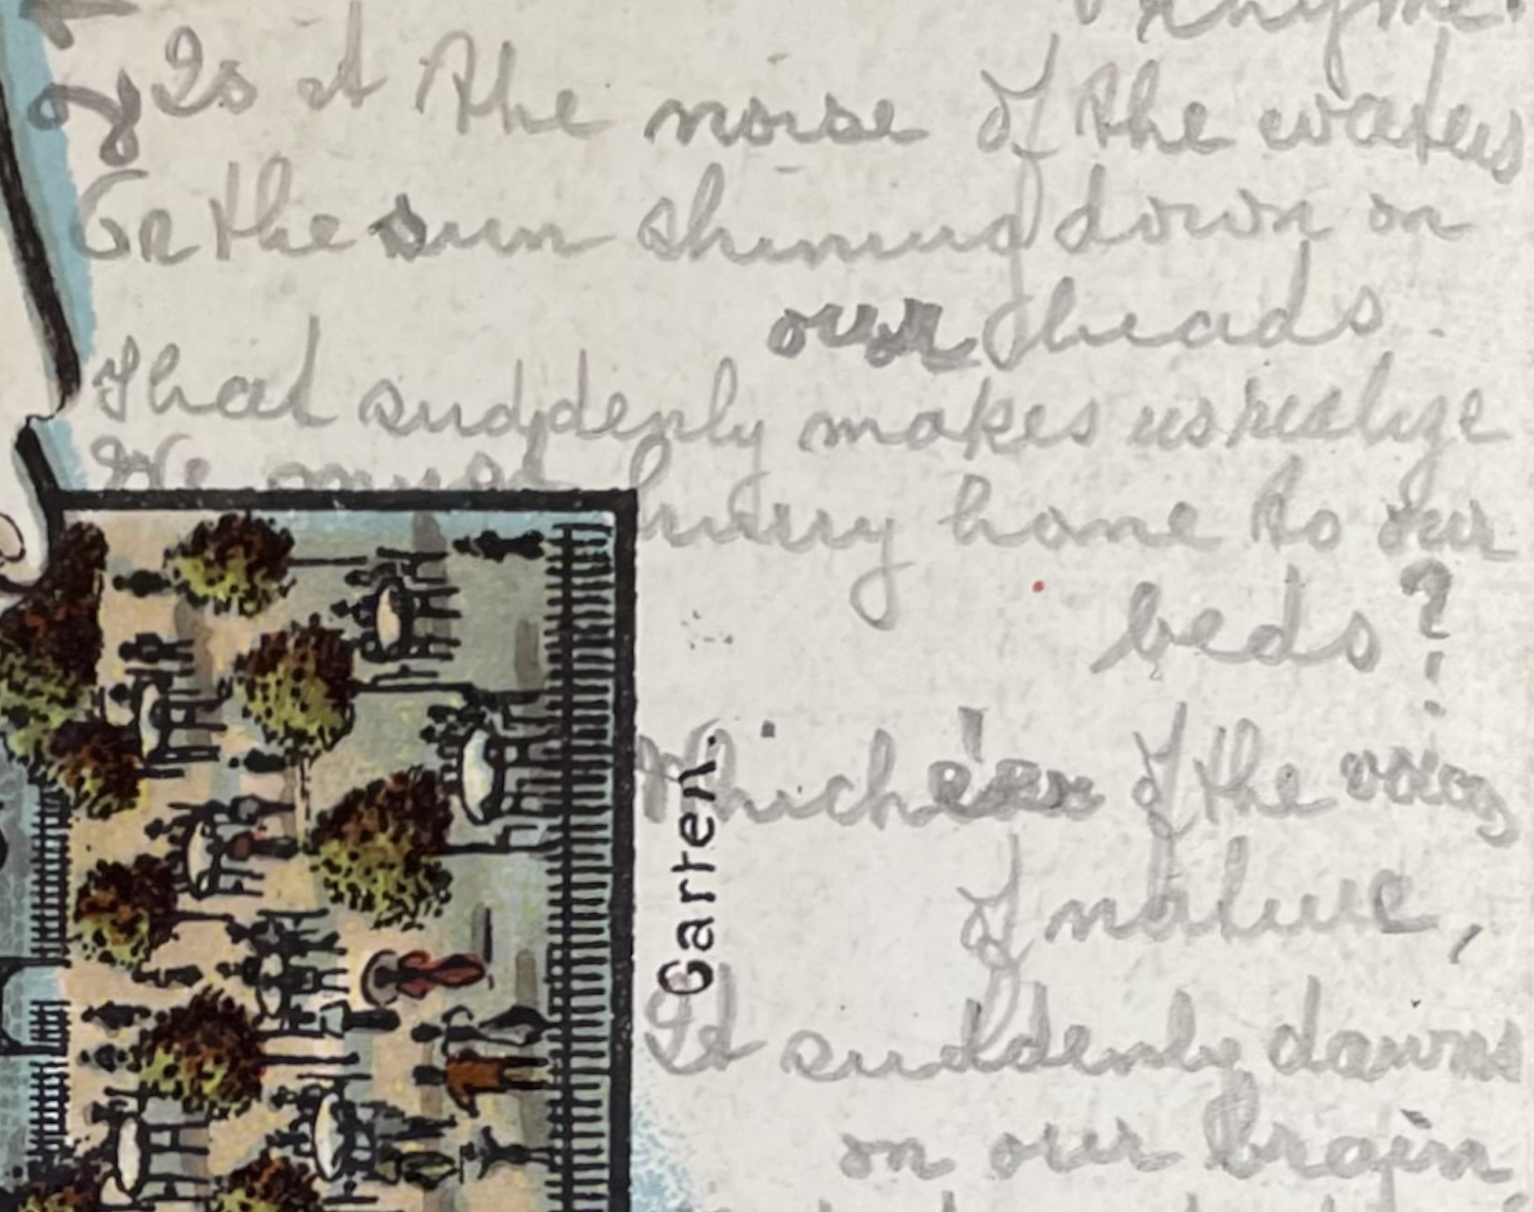 rhyme.
Is it the noise of the waters
Or the sun shining down on
our heads.
That suddenly makes us realize
We must hurry home to our
beds?
Which e'er of the voices
of nature,
It suddenly dawns
on our brain
Garten.